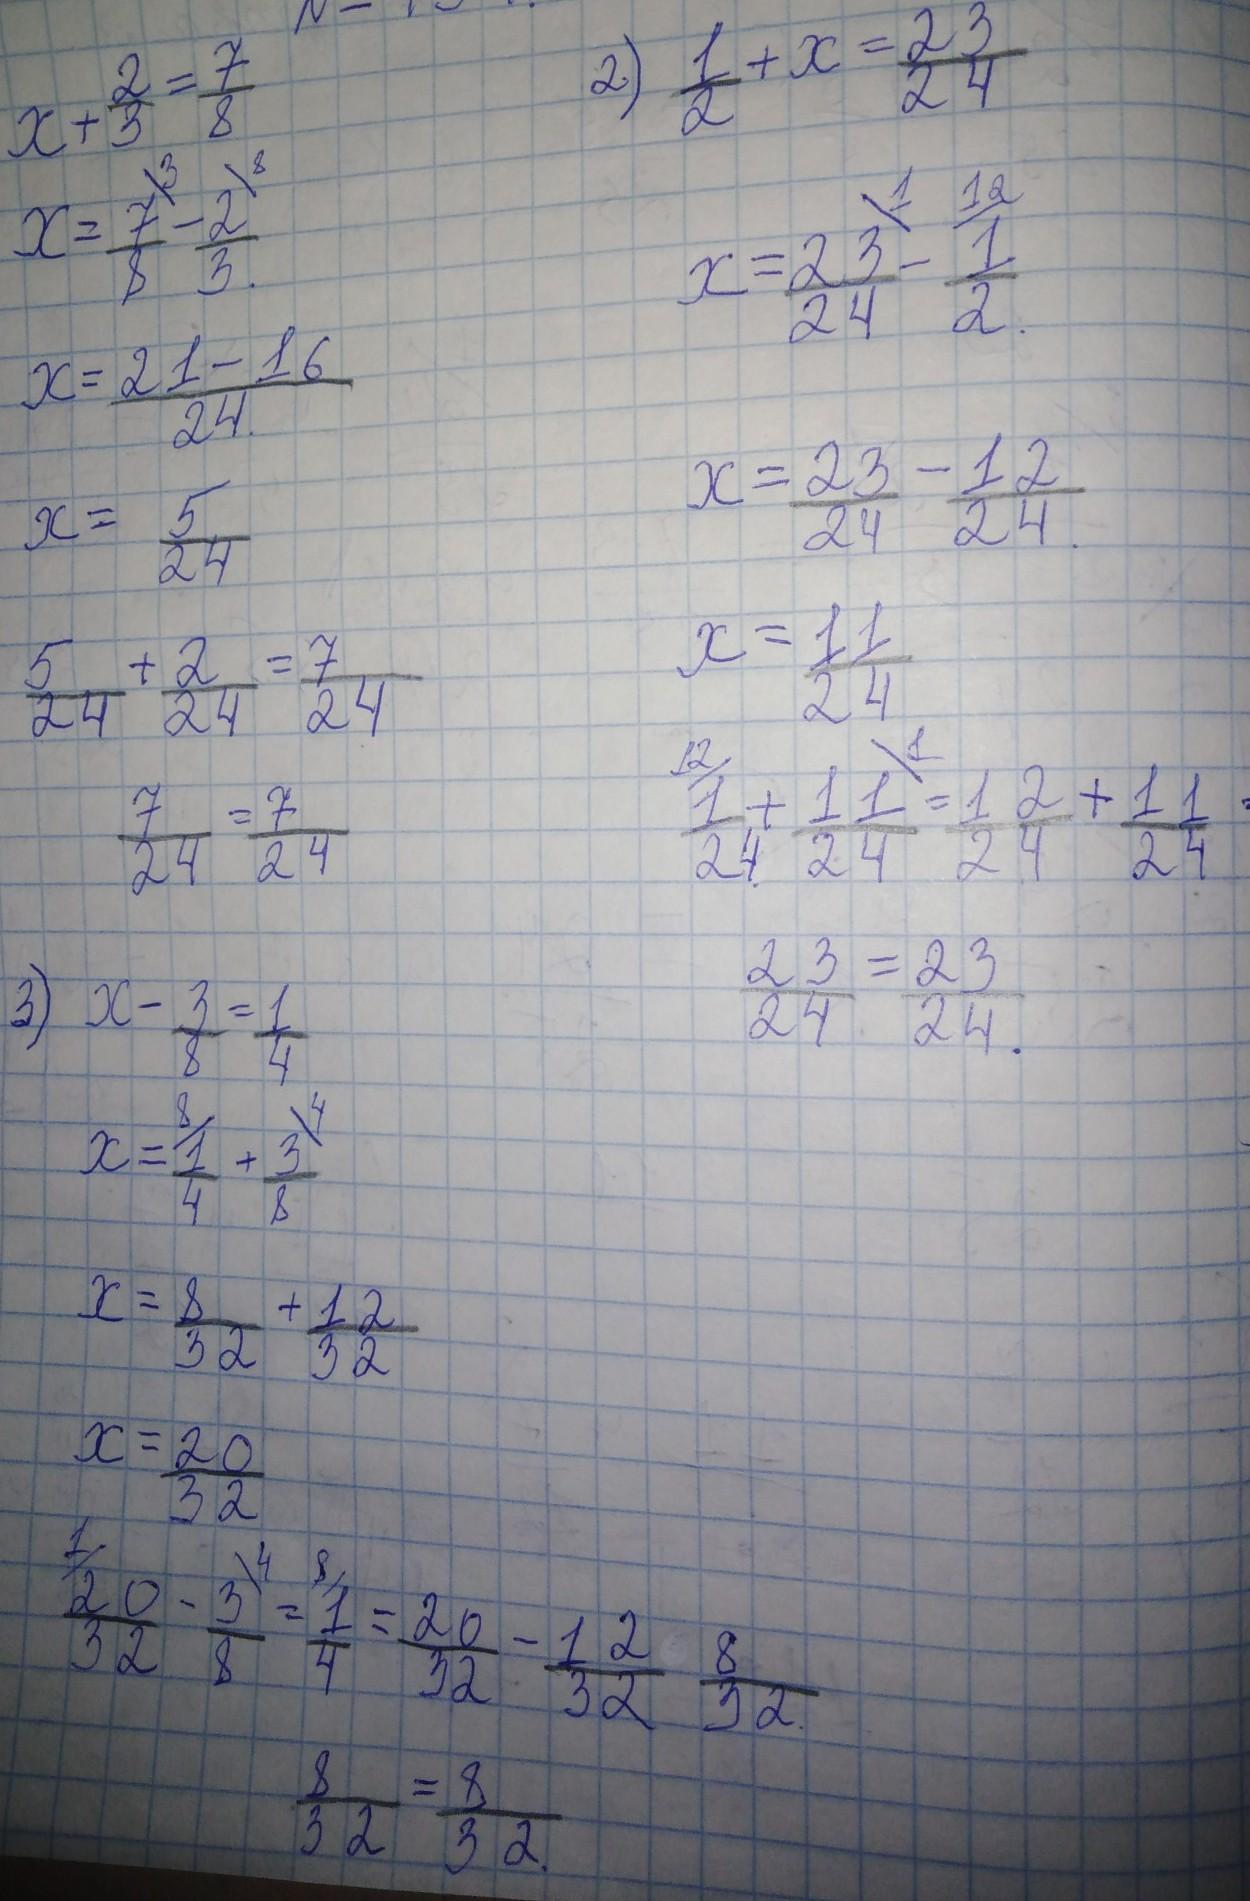 x + 2/3 = 7/8
x = 7/8 \3 - 2/3 \8.
x = 21 - 16/24.
x = 5/24
5/24 + 2/24 = 7/24
7/24 = 7/24
2) 1/2 + x = 23/24
x = 23/24 \1 - 12/ 1/2.
x = 23/24 - 12/24.
x = 11/24
12/ 1/24. + 11/24 \1 = 12/24 + 11/24 =
23/24 = 23/24.
3) x - 3/8 = 1/4
x = 8/ 1/4 + 3/8 \4
x = 8/32 + 12/32
x = 20/32
1/ 20/32 - 3/8 \4 = 8/ 1/4 = 20/32 - 12/32 8/32.
8/32 = 8/32.